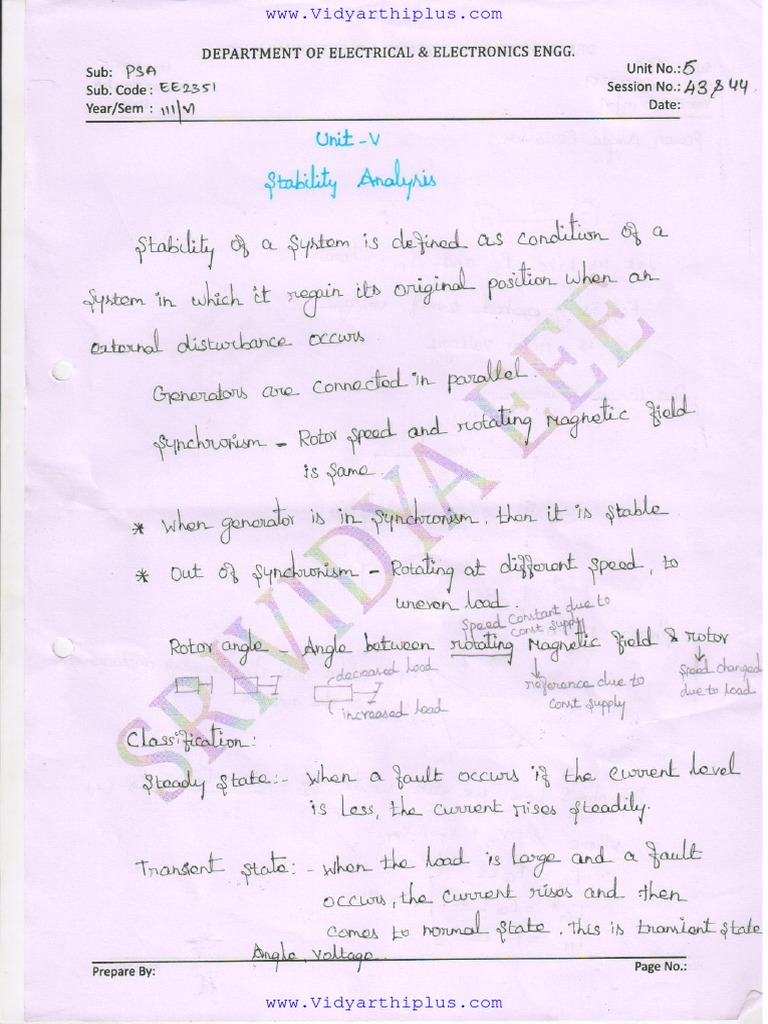 www.Vidyarthiplus.com
DEPARTMENT OF ELECTRICAL & ELECTRONICS ENGG.
Sub: PSA
Unit No.: 5
Sub. Code : EE2351
Session No.: 43 & 44
Year/Sem : III/VI
Date:
Unit - V
Stability Analysis
Stability of a System is defined as condition of a
System in which it regain its original position when an
external disturbance occurs
Generators are connected in parallel.
Synchronism - Rotor Speed and rotating Magnetic field
is same.
* When generator is in Synchronism, then it is Stable
* Out of Synchronism - Rotating at different Speed, to
uneven load.
Speed Constant due to
Const. supply
Rotor angle - Angle between rotating Magnetic field & rotor
decreased load
reference due to
const supply
Speed changed
due to load
increased load
Classification:
Steady State:- When a fault occurs if the current level
is less, the current rises steadily.
Transient State: - When the load is large and a fault
occurs, the current rises and then
comes to normal state. This is transient state
Angle, voltage
Prepare By:
Page No.:
www.Vidyarthiplus.com
SRIVIDYA EEE